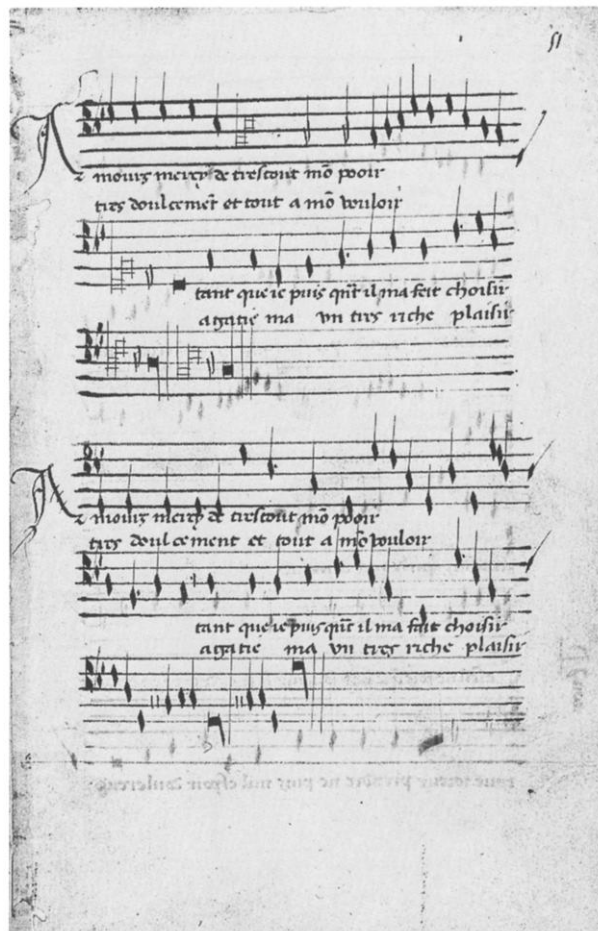 51
Amours mercy de trestout mō pooir
tres doulcemēt et tout a mō vouloir
tant que ie puis qn̄t il ma fait choisir
agatie ma vn tres riche plaisir
Amours mercy de trestout mō pooir
tres doulcement et tout a mō vouloir
tant que ie puis qn̄t il ma fait choisir
agatie ma vn tres riche plaisir